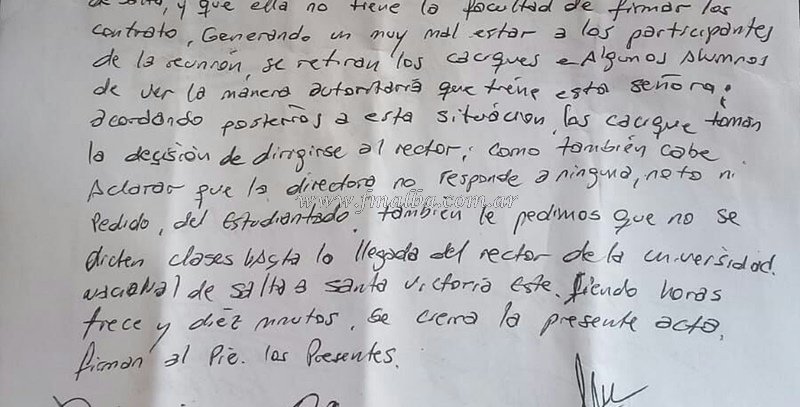 de Salta, y que ella no tiene la facultad de firmar los
contrato, Generando un muy mal estar a los participantes
de la reunión, se retiran los caciques e Algunos Alumnos
de ver la manera autoritaria que tiene esta señora;
acordando posterios a esta situación, las cacique toman
la decisión de dirigirse al rector; como también cabe
Aclarar que la directora no responde a ninguna, nota ni
www.finalba.com.ar
Pedido, del Estudiantado. también le pedimos que no se
dicten clases hasta la llegada del rector de la universidad.
Nacional de Salta a Santa Victoria Este. siendo horas
trece y diez minutos, se cierra la presente acta,
firman al Pie. las Presentes.